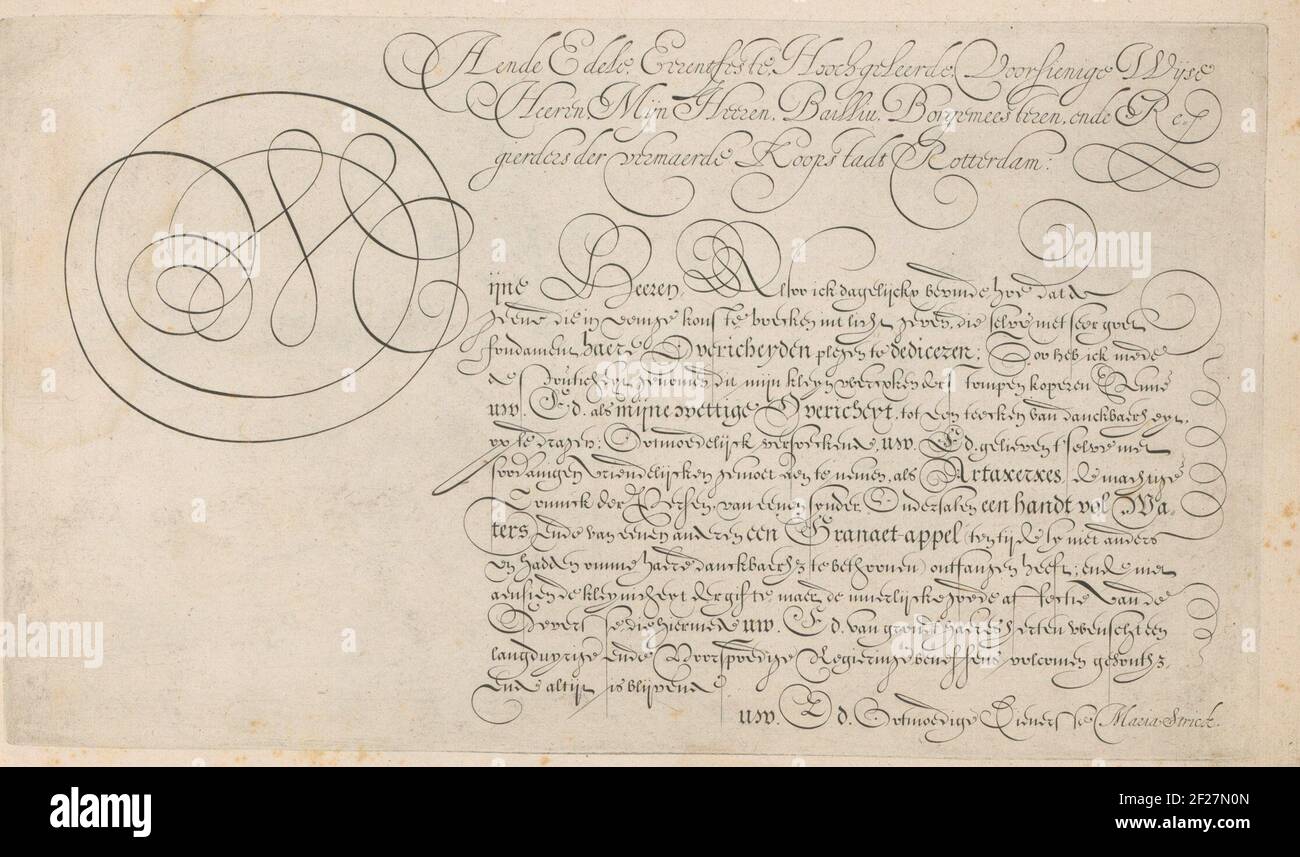 Aende Edele, Erentfeste, Hoochgeleerde, Voorsienige Wyse
Heeren, Mijn Heeren, Bailliu, Borgemeesteren, ende Re„
gierders der vermaerde Koopstadt Rotterdam:
M
ijne Heeren, Alsoo ick dagelijckx bevinde hoe dat de
geene die in eenige konste boecken int licht geven, die selve met seer goet
fondament haere Overicheyden plegen te dediceren; Soo heb ick mede
de genomen, dit mijn kleyn wercxken der Stompen koperen Penne
uw. Ed. als mijne wettige Overicheyt, tot een teecken van danckbaerheyt,
op te dragen; Ootmoedelijck versoeckende, uw. Ed. gelieven t'selve met
soodanigen vriendelijcken gemoet aen te nemen, als Artaxerxes, de machtige
Coninck der Persen, van eenen sijnder Ondersaten een handt vol Wa-
ters, ende van eenen anderen een Granaet-appel (ten tijde sy niet anders
en hadden omme haere danckbaerh: te bethoonen) ontfangen heeft; ende niet
aensien de kleynicheyt der gifte, maer de innerlijcke goede affectie van de
Geversse, die hiermede uw. Ed. van gront haeres herten wenscht een
langduyrige ende Voorspoedige Regieringe beneffens volcomen gesonth:
ende altijt is blijvende
uw. Ed. Ootmoedige Dienersse Maria Strick.
alamy
alamy
Image ID: 2F27N0N
www.alamy.com